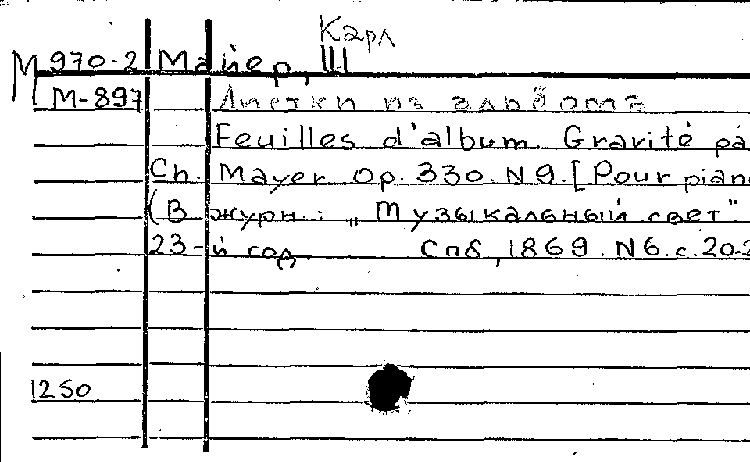 Карл
М 970-2 Майер, Ш
М-897 Листки из альбома
Feuilles d'album. Gravité pa
Ch. Mayer Op. 330. N 9. [Pour pian
(В журн.: „Музыкальный свет".
23-й год Спб, 1869. N6. с. 20-2
1250